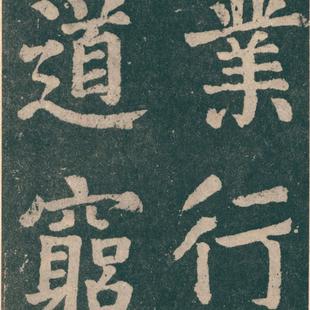 業行
道窮